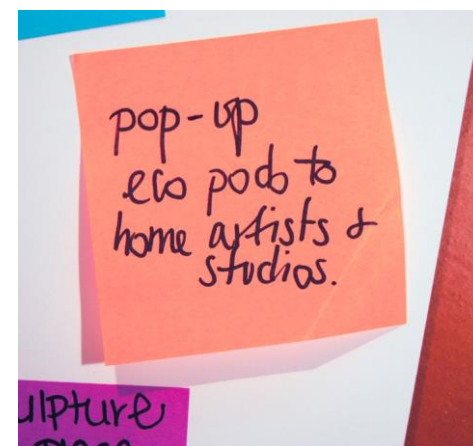 pop-up
eco pods to
home artists &
studios.
ulpture